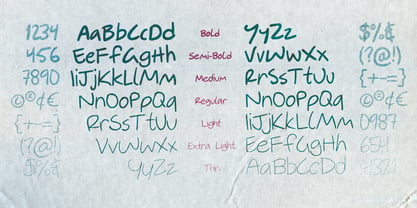 1234 AaBbCcDd Bold YyZz $%&
456 EeFfGgHh Semi-Bold VvWwXx (?@!)
7890 IiJjKkLlMm Medium RrSsTtUu {+-=}
©®¢€ NnOoPpQq Regular NnOoPpQq ©®¢€
{+-=} RrSsTtUu Light IiJjKkLlMm 0987
(?@!) VvWwXx Extra Light EeFfGgHh 654
$%& YyZz Thin AaBbCcDd 4321